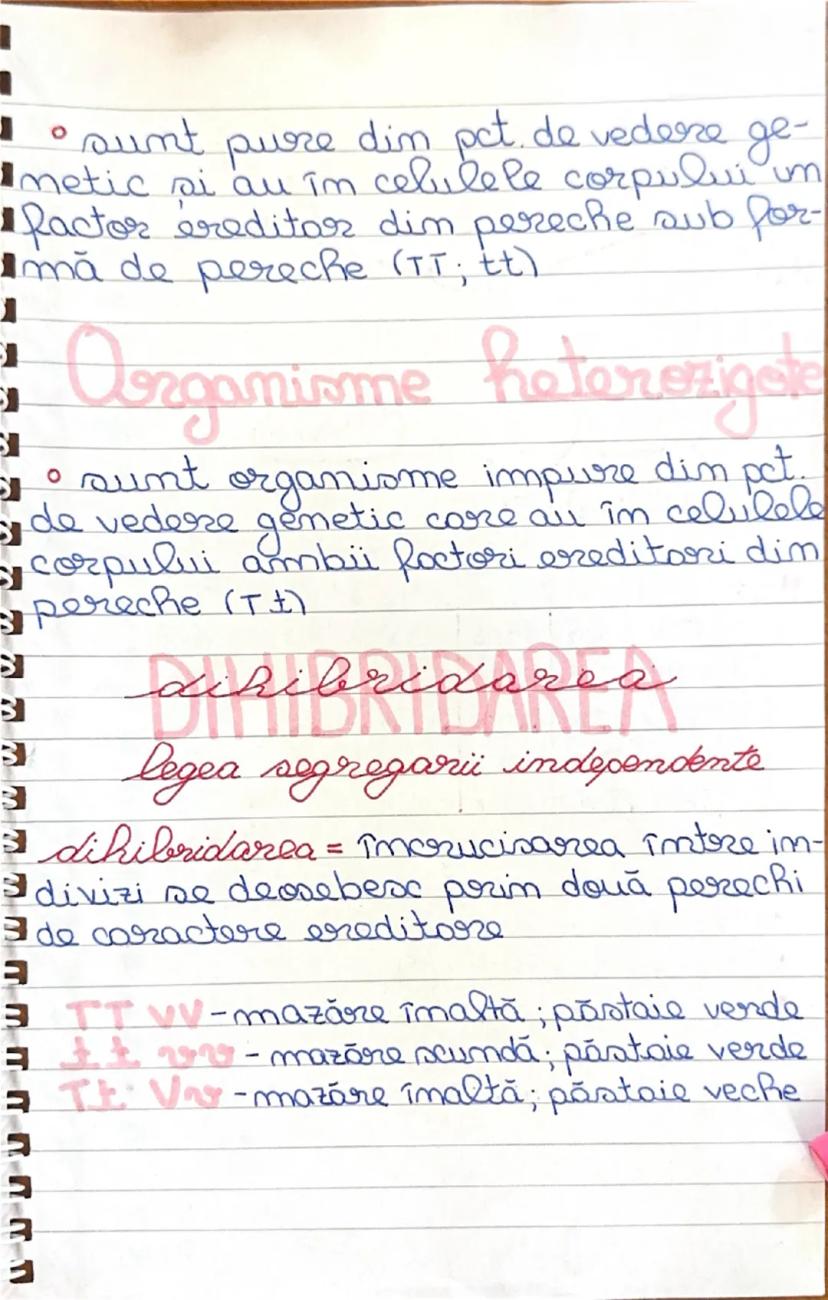 • sunt pure din pct. de vedere ge-
netic și au în celulele corpului un
factor ereditar din pereche sub for-
mă de pereche (TT; tt)
Organisme heterozigote
• sunt organisme impure din pct.
de vedere genetic care au în celulele
corpului ambii factori ereditari din
pereche (Tt)
DIHIBRIDAREA
dihibridarea
legea segregarii independente
dihibridarea = încrucisarea între in-
divizi se deosebesc prin două perechi
de caractere ereditare
TT VV - mazăre înaltă; păstaie verde
tt vv - mazăre scundă; păstaie verde
Tt Vv - mazăre înaltă; păstaie veche